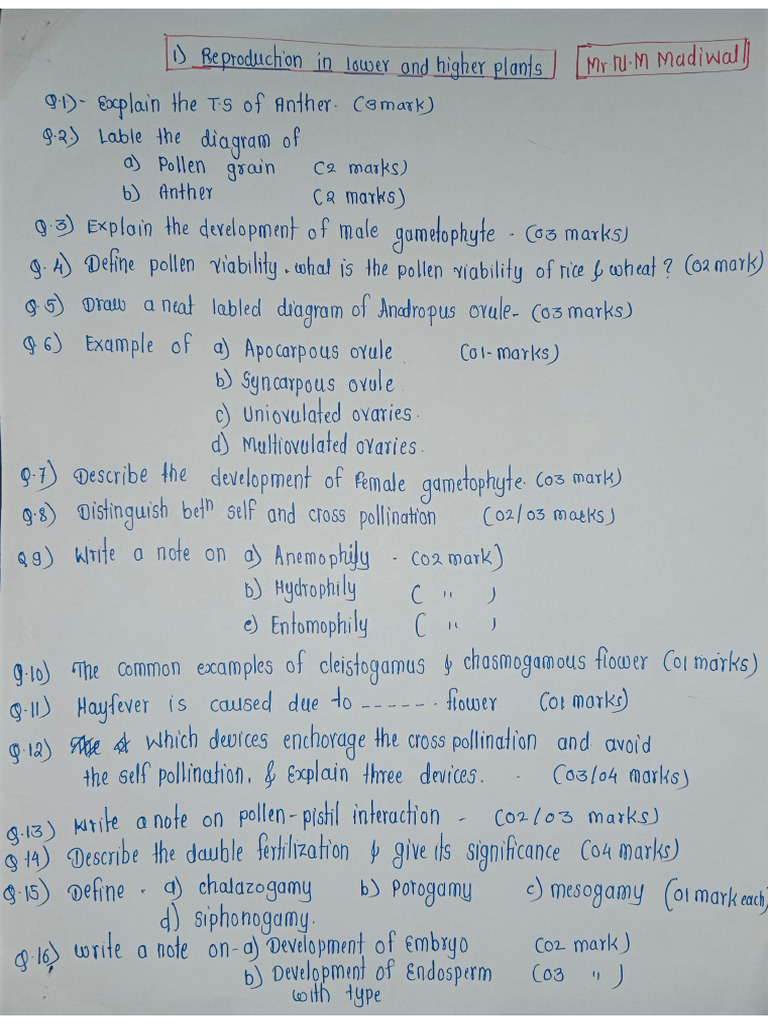 1) Reproduction in lower and higher plants
Mr. N.M Madiwal
Q.1)- Explain the T.S of Anther. (3mark)
Q.2.) Lable the diagram of
a) Pollen grain (2 marks)
b) Anther (2 marks)
Q.3) Explain the development of male gametophyte - (03 marks)
Q.4) Define pollen viability. what is the pollen viability of rice & wheat? (02 mark)
Q.5) Draw a neat labled diagram of Andropus ovule- (03 marks)
Q6) Example of a) Apocarpous ovule (01-marks)
b) Syncarpous ovule
c) Uniovulated ovaries.
d) Multiovulated ovaries.
Q.7) Describe the development of Female gametophyte. (03 mark)
Q.8) Distinguish betn self and cross pollination (02/03 marks)
Q9) Write a note on a) Anemophily - (02 mark)
b) Hydrophily ( " )
c) Entomophily ( " )
Q.10) The common examples of cleistogamus & chasmogamous flower (01 marks)
Q.11) Hayfever is caused due to ------ flower (01 marks)
Q.12) Which devices enchorage the cross pollination and avoid
the self pollination. & Explain three devices. - (03/04 marks)
Q.13) Write a note on pollen-pistil interaction - (02/03 marks)
Q.14) Describe the dauble fertilization & give its significance (04 marks)
Q.15) Define - a) chalazogamy b) Porogamy c) mesogamy (01 mark each)
d) siphonogamy.
Q.16) Write a note on- a) Development of Embryo (02 mark)
b) Development of Endosperm (03 " )
with type